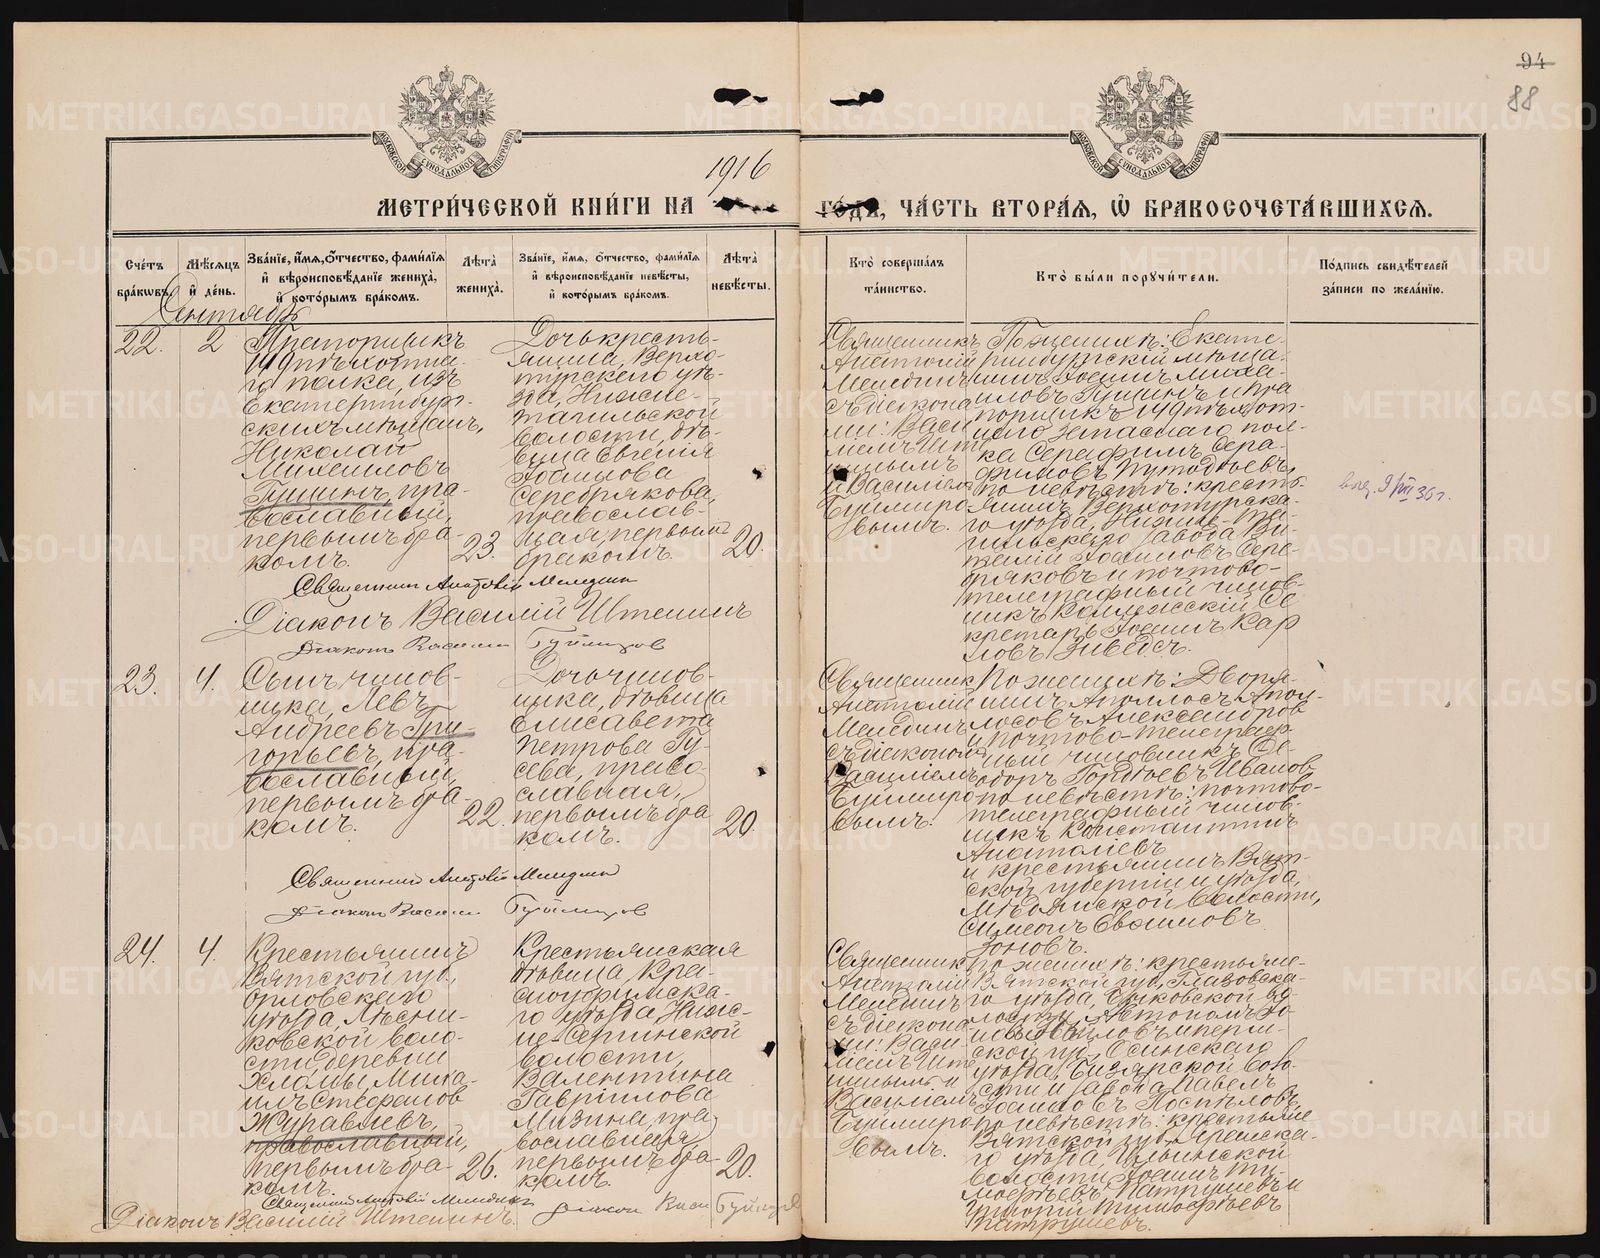 94
88
1916
МЕТРИ́ЧЕСКОЙ КНИ́ГИ НА ГО́ДЪ, ЧА́СТЬ ВТОРА́Я, Ѡ БРАКОСОЧЕТА́ВШИХСЯ.
Сче́тъ бра́кѡвъ.
Мѣ́сяцъ и де́нь.
Зва́нїе, и́мя, ѻ́тчество, фами́лїя и вѣроисповѣ́данїе жениха̀, и кото́рымъ бра́комъ.
Лѣта̀ жениха̀.
Зва́нїе, и́мя, ѻ́тчество, фами́лїя и вѣроисповѣ́данїе невѣ́сты, и кото́рымъ бра́комъ.
Лѣта̀ невѣ́сты.
Кто̀ соверша́лъ та́инство.
Кто̀ бы́ли поручи́тели.
По́дпись свидѣ́телей за́писи по жела́нїю.
Сентябрь
22.
2
Прапорщикъ
149 пѣхотна-
го полка, изъ
Екатеринбург-
скихъ мѣщанъ,
Николай
Михаиловъ
Гущинъ, пра-
вославный,
первымъ бра-
комъ.
23.
Дочь кресть-
янина, Верхо-
турскаго уѣз-
да, Нижне-
тагильской
волости, дѣ-
вица Евгенія
Іоаннова
Серебрякова,
православ-
ная, первымъ
бракомъ.
20.
Священникъ
Анатолій
Мелединъ
съ діакона-
ми: Васи-
ліемъ Ште-
нинымъ
и Василіемъ
Буймиро-
вымъ.
По женихѣ: Екате-
ринбургскій мѣща-
нинъ Іоаннъ Миха-
иловъ Гущинъ и пра-
порщикъ 149 пѣхот-
наго запаснаго пол-
ка Серафимъ Сера-
фимовъ
по невѣстѣ: кресть-
янинъ Верхотурска-
го уѣзда, Нижне-Та-
гильскаго завода Ви-
талій Іоанновъ Сере-
бряковъ и почтово-
телеграфный чинов-
никъ
кретарь Іоаннъ Кар
ловъ Зиведсъ.
Священникъ Анатолій Мелединъ
Діаконъ Василій Штенинъ
Діаконъ Василій Буймировъ
23.
4.
Сынъ чинов-
ника, Левъ
Андреевъ Гри-
горьевъ, пра-
вославный,
первымъ бра-
комъ.
22.
Дочь чинов-
ника, дѣвица
Елисавета
Петрова Гу-
сева, право-
славная,
первымъ бра
комъ.
20.
Священникъ
Анатолій
Мелединъ
съ діакономъ
Василіемъ
Буймиро-
вымъ.
По женихѣ: Дворя-
нинъ Аполлосъ Апол-
лосовъ Александров
и почтово-телеграф-
ный чиновникъ Ѳе-
одоръ Гордѣевъ Иванов
по невѣстѣ: почтово-
телеграфный чинов-
никъ Константинъ
Анатоліевъ
и крестьянинъ Вят-
ской губерніи и уѣзда,
Мѣдянской волости,
Симеонъ Евѳимовъ
Зоновъ.
Священникъ Анатолій Мелединъ
Діаконъ Василій Буймировъ
24.
4.
Крестьянинъ
Вятской губ.,
Орловскаго
уѣзда, Лѣсни-
ковской воло-
сти, деревни
Хламы, Миха-
илъ Стефанов
Журавлевъ,
православный,
первымъ бра-
комъ.
26.
Крестьянская
дѣвица, Кра-
сноуфимска-
го уѣзда, Ниж-
не-Сергинской
волости,
Валентина
Гавріилова
Мизина, пра-
вославная,
первымъ бра-
комъ.
20.
Священникъ
Анатолій
Мелединъ
съ діакона-
ми: Васи-
ліемъ Ште-
нинымъ и
Василіемъ
Буймиро-
вымъ.
по женихѣ: крестьяне-
Вятской губ., Глазовска-
го уѣзда,
Перм-
ской губ., Осинскаго
уѣзда, Бизярской воло-
сти и завода Павелъ
Іоанновъ Поспѣловъ,
по невѣстѣ: крестьяне
Вятской губ., Яренска-
го уѣзда, Ильинской
волости, Іоаннъ Ти-
моѳеевъ Патрушевъ и
Тимоѳеевъ
Патрушевъ.
Священникъ Анатолій Мелединъ
Діаконъ Василій Буймировъ
Діаконъ Василій Штенинъ.